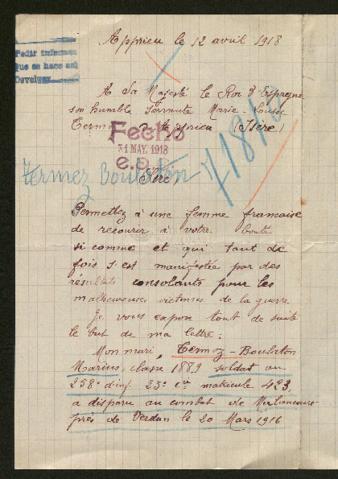 Apprieu le 12 avril 1918
Pedir informes
que se hace asi
Devolver
A Sa Majesté le Roi d'Espagne
son humble servante Marie-Louise
Termoz à Apprieu (Isère)
Fecho
31 MAY. 1918
71848
Termez Boulaton
Sire
Permettez à une femme française
de recourir à votre bonté
si connue et qui tant de
fois s'est manifestée par des
résultats consolants pour les
malheureuses victimes de la guerre
Je vous expose tout de suite
le but de ma lettre:
Mon mari, Termoz-Boulaton
Marius, classe 1889 soldat au
258e d'inf 23e Cie matricule 423
a disparu au combat de Malancourt
près de Verdun le 20 Mars 1916